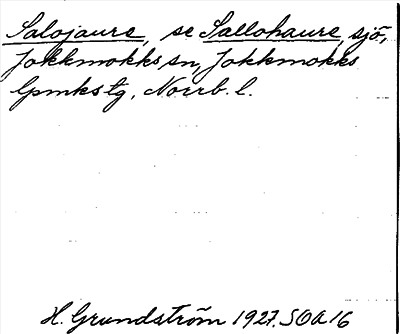 Salojaure, se Sallohaure, sjö,
Jokkmokks sn, Jokkmokks
lpmks tg, Norrb. l.
H. Grundström 1927. SOA 16